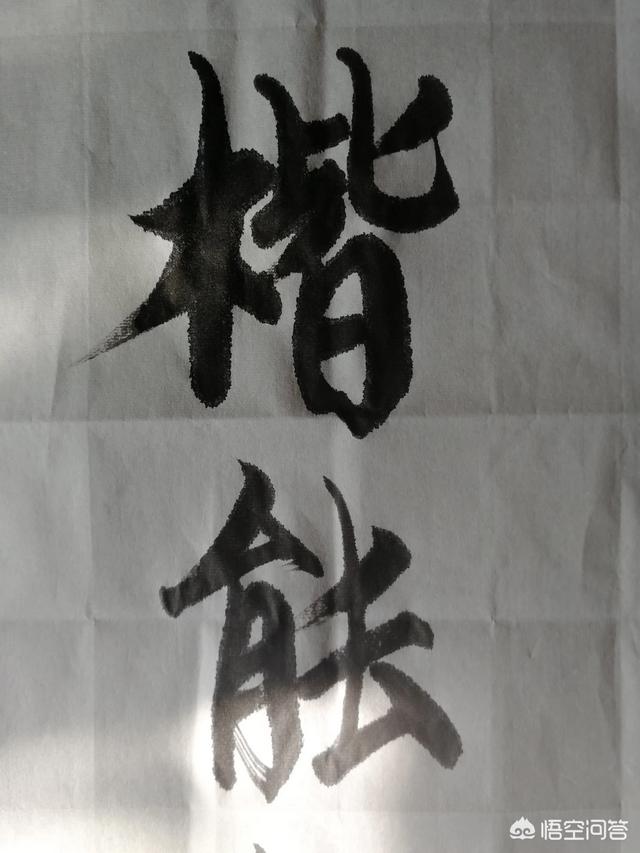 楷
能
悟空问答